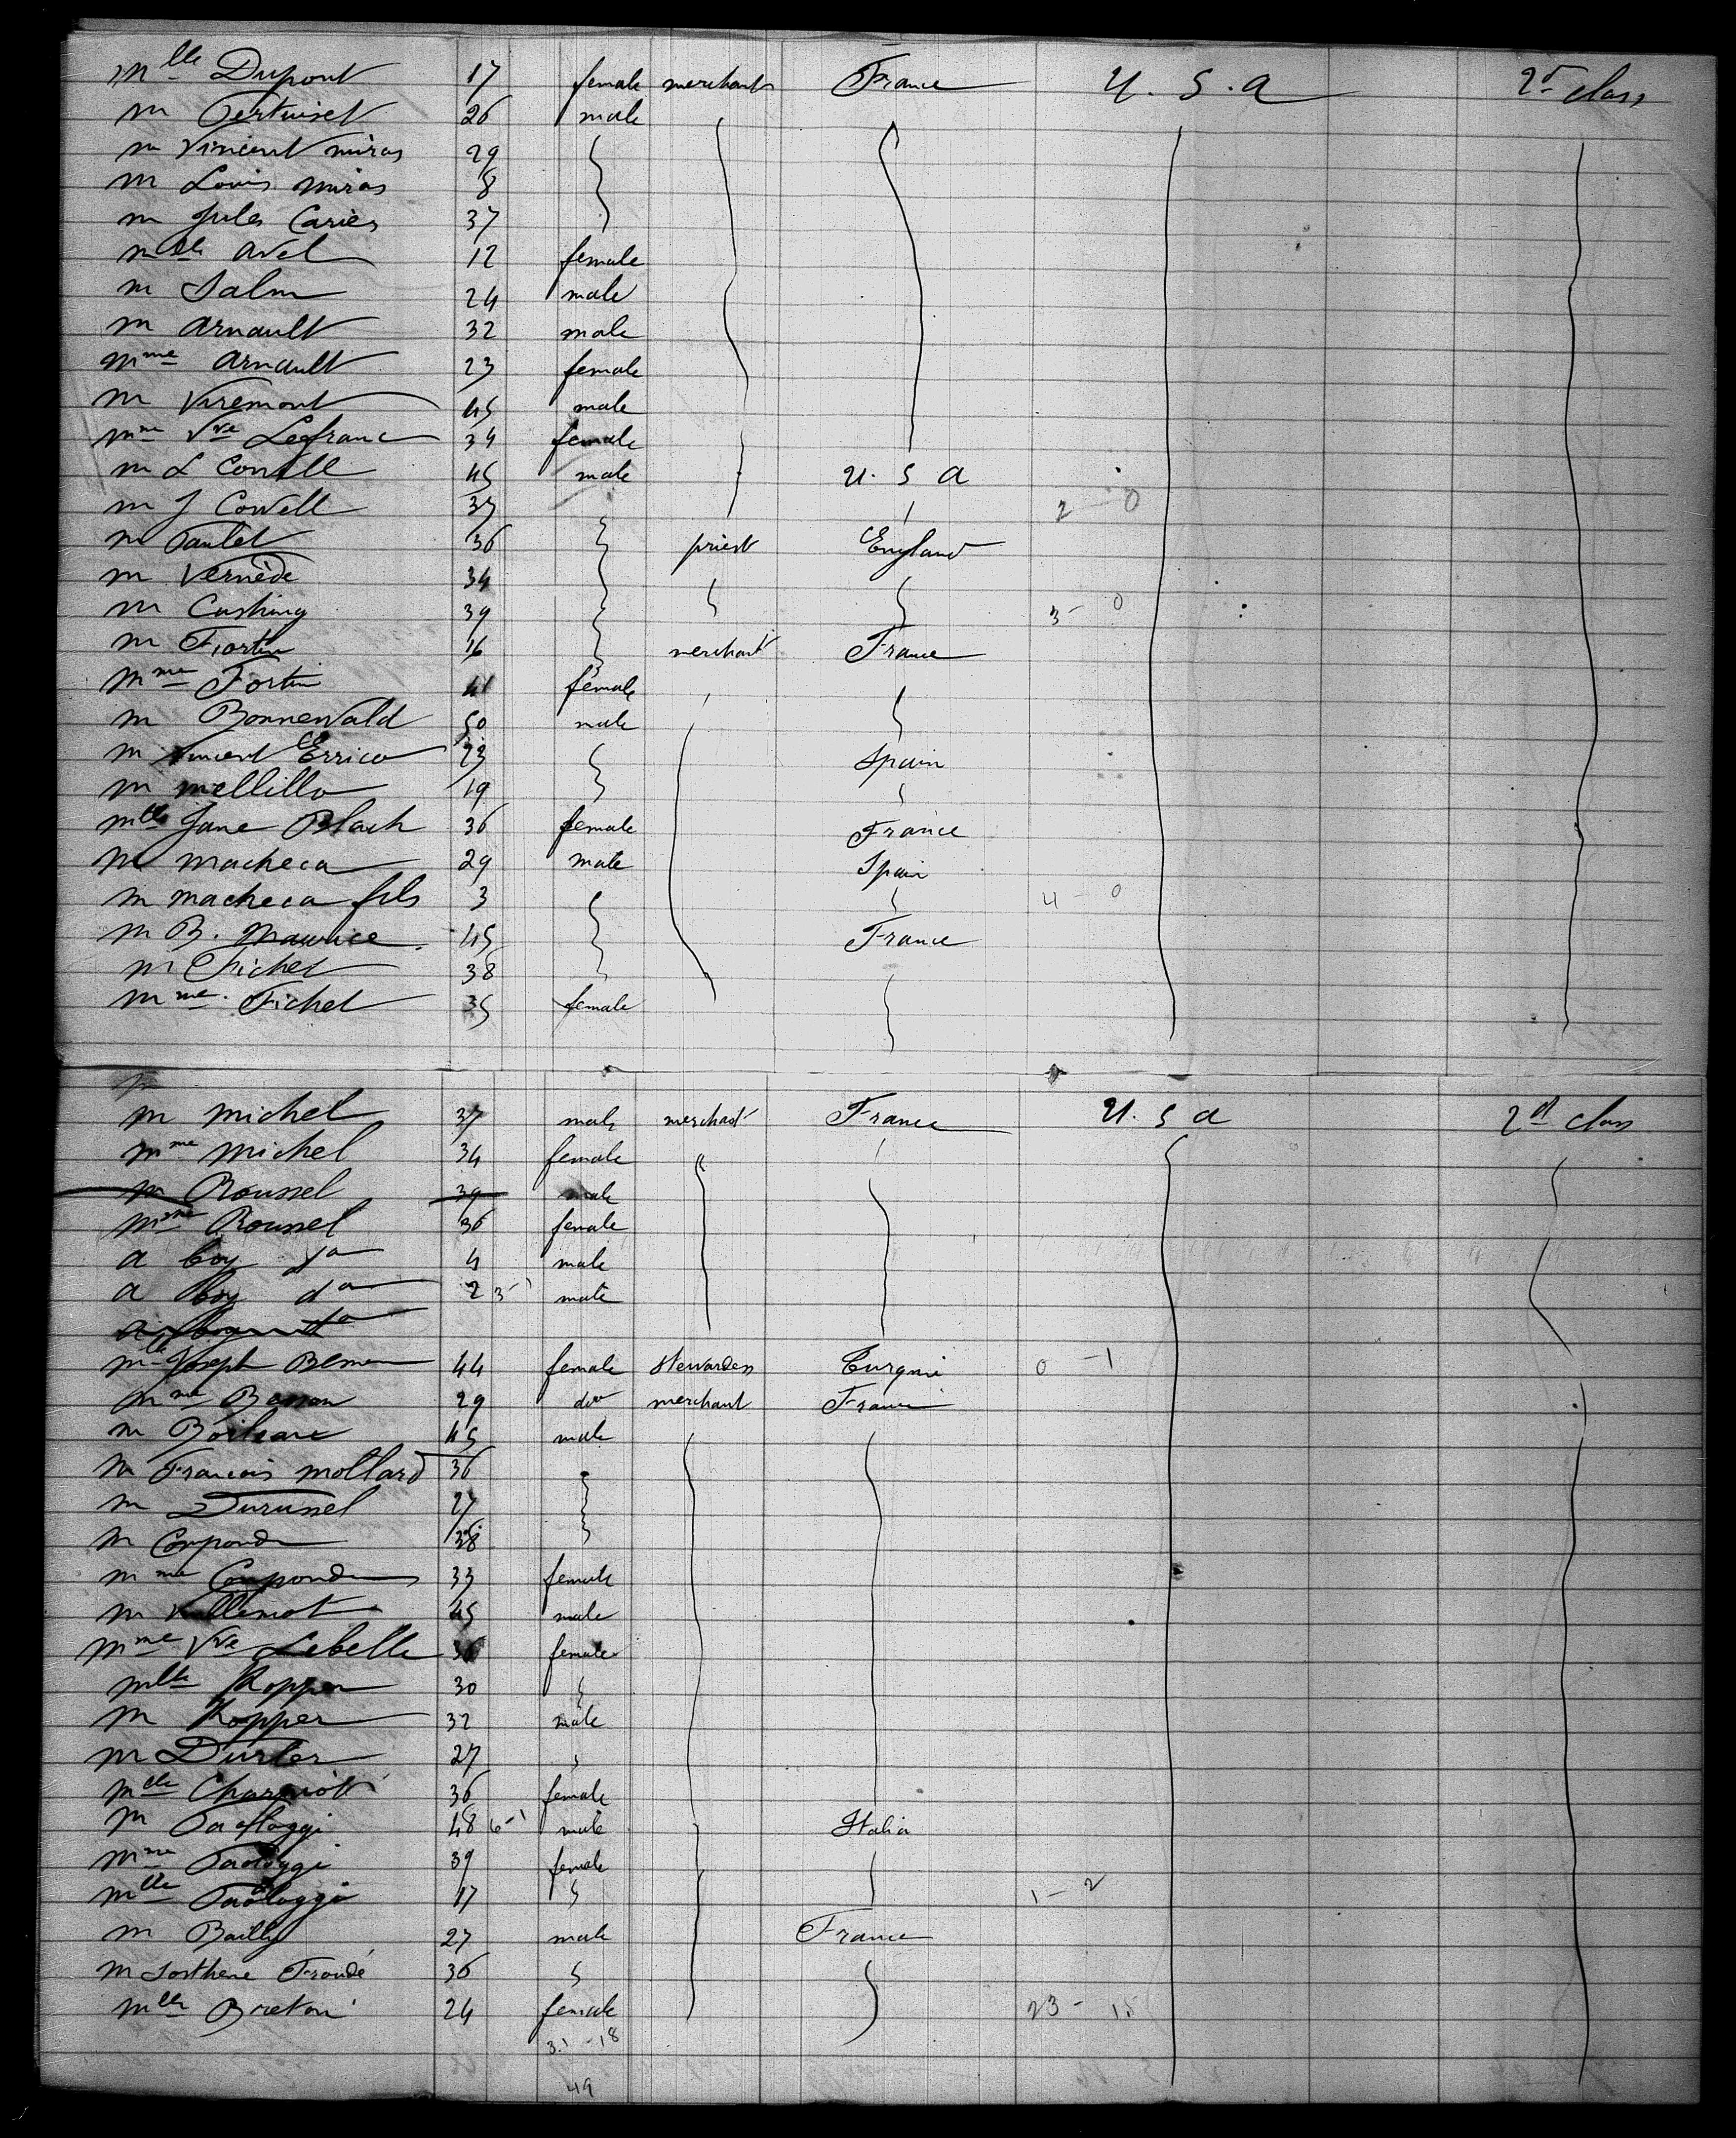 Mlle Dupont 17 female merchant France U.S.A 2d class
M Pertuiset 26 male
M Vincent Miras 29
M Louis Miras 8
M Jules Cariès 37
Mlle Avel 12 female
M Salm 24 male
M Arnault 32 male
Mme Arnault 23 female
M Viremont 45 male
Mme Vve Lefranc 34 female
M L Cowell 45 male U.S A
M J Cowell 37 2 - 0
M Paulet 36 priest England
M Vernède 34
M Cushing 39 3 - 0
M Fortin 16 merchant France
Mme Fortin 41 female
M Bonnewald 50 male
M Vincent Errico 23 Spain
M Mellillo 19
Mlle Jane Black 36 female France
M Macheca 29 male Spain
M Macheca fils 3 4 - 0
M B. Maurice 45 France
M Fichet 38
Mme Fichet 35 female
M Michel 37 male merchant France U.S a 2d class
Mme Michel 34 female
M Roussel 39 male
Mme Roussel 36 female
A boy do 4 male
A boy do 2 3-1 male
do
Joseph 44 female Stewardess Turquie 0 - 1
Mme Besson 29 do merchant France
M 45 male
M Francois Mollard 36
M Durussel 27
M 38
Mme 33 female
M Vuillemot 45 male
Mme Vve Lebelle 36 female
Mlle Kopper 30
M Kopper 32 male
M Durler 27
Mlle Charriot 36 female
M 48 6-1 male Italia
Mme 39 female
Mlle 17 1 - 2
M Bailly 27 male France
M Sosthene Froudé 36
Mlle Breton 24 female 23 - 15
31 - 18
49